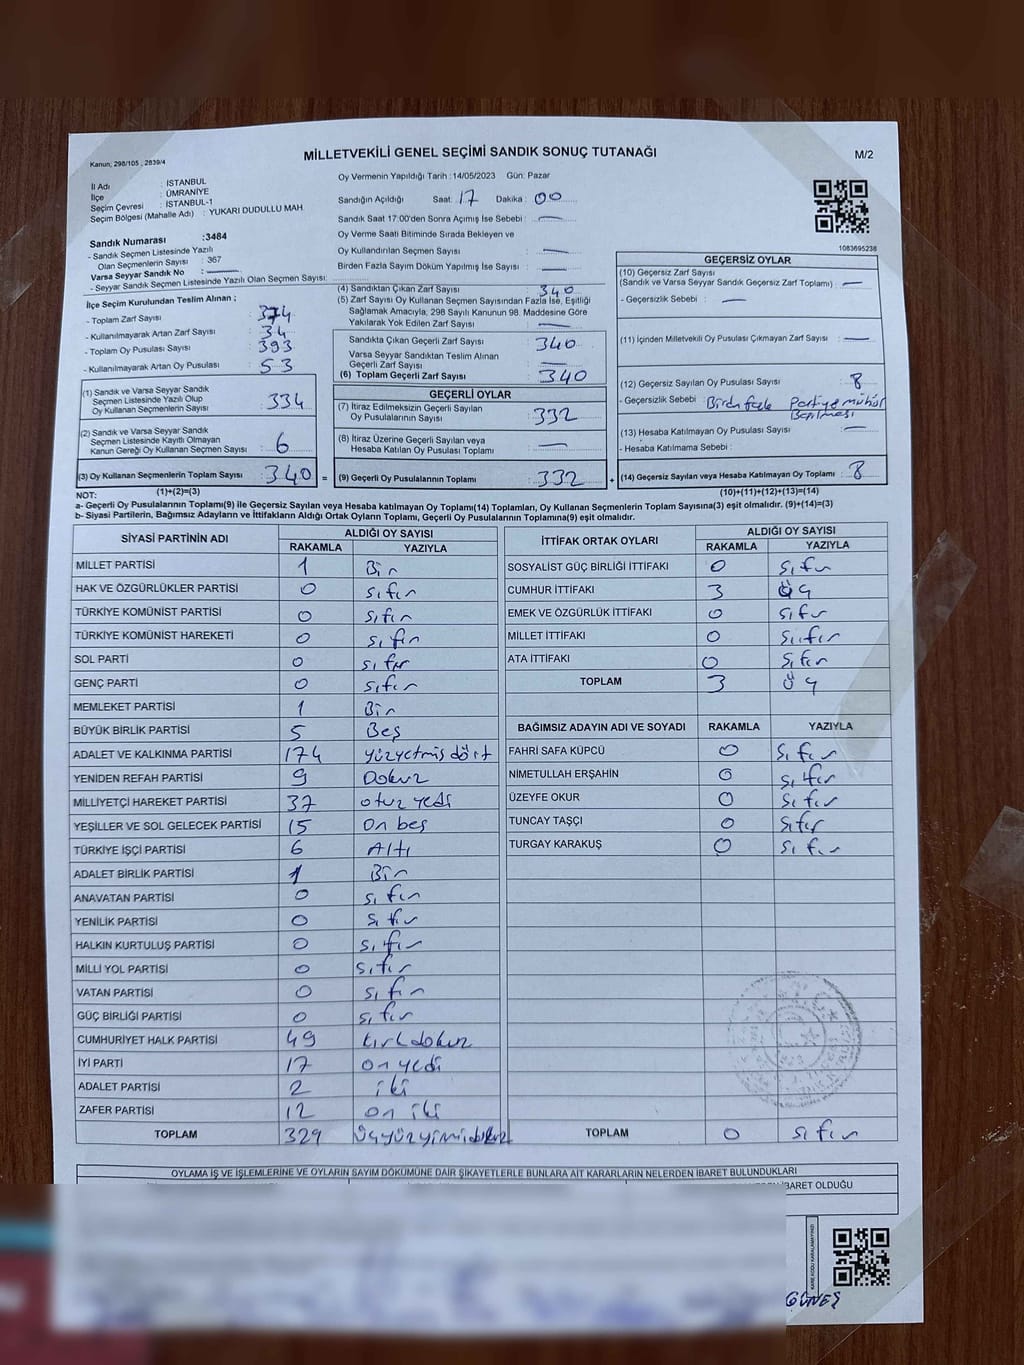 Kanun; 298/105 ; 2839/4
MİLLETVEKİLİ GENEL SEÇİMİ SANDIK SONUÇ TUTANAĞI
M/2
İl Adı : İSTANBUL
İlçe : ÜMRANİYE
Seçim Çevresi : İSTANBUL-1
Seçim Bölgesi (Mahalle Adı) : YUKARI DUDULLU MAH.
Sandık Numarası :3484
- Sandık Seçmen Listesinde Yazılı
Olan Seçmenlerin Sayısı : 367
Varsa Seyyar Sandık No : —
- Seyyar Sandık Seçmen Listesinde Yazılı Olan Seçmen Sayısı:
İlçe Seçim Kurulundan Teslim Alınan ;
- Toplam Zarf Sayısı : 374
- Kullanılmayarak Artan Zarf Sayısı : 34
- Toplam Oy Pusulası Sayısı : 393
- Kullanılmayarak Artan Oy Pusulası : 53
(1) Sandık ve Varsa Seyyar Sandık
Seçmen Listesinde Yazılı Olup
Oy Kullanan Seçmenlerin Sayısı : 334
(2) Sandık ve Varsa Seyyar Sandık
Seçmen Listesinde Kayıtlı Olmayan
Kanun Gereği Oy Kullanan Seçmen Sayısı : 6
(3) Oy Kullanan Seçmenlerin Toplam Sayısı : 340
(1)+(2)=(3)
Oy Vermenin Yapıldığı Tarih :14/05/2023 Gün: Pazar
Sandığın Açıldığı Saat: 17 Dakika : 00
Sandık Saat 17:00'den Sonra Açımış İse Sebebi : —
Oy Verme Saati Bitiminde Sırada Bekleyen ve
Oy Kullandırılan Seçmen Sayısı : —
Birden Fazla Sayım Döküm Yapılmış İse Sayısı : —
(4) Sandıktan Çıkan Zarf Sayısı : 340
(5) Zarf Sayısı Oy Kullanan Seçmen Sayısından Fazla İse, Eşitliği
Sağlamak Amacıyla; 298 Sayılı Kanunun 98. Maddesine Göre
Yakılarak Yok Edilen Zarf Sayısı : —
Sandıkta Çıkan Geçerli Zarf Sayısı : 340
Varsa Seyyar Sandıktan Teslim Alınan
Geçerli Zarf Sayısı : —
(6) Toplam Geçerli Zarf Sayısı : 340
GEÇERLİ OYLAR
(7) İtiraz Edilmeksizin Geçerli Sayılan
Oy Pusulalarının Sayısı : 332
(8) İtiraz Üzerine Geçerli Sayılan veya
Hesaba Katılan Oy Pusulası Toplamı : —
= (9) Geçerli Oy Pusulalarının Toplamı : 332 +
1083695238
GEÇERSİZ OYLAR
(10) Geçersiz Zarf Sayısı
(Sandık ve Varsa Seyyar Sandık Geçersiz Zarf Toplamı) : —
- Geçersizlik Sebebi : —
(11) İçinden Milletvekili Oy Pusulası Çıkmayan Zarf Sayısı : —
(12) Geçersiz Sayılan Oy Pusulası Sayısı : 8
- Geçersizlik Sebebi : Birden fazla Partiye mühür
Basılması
(13) Hesaba Katılmayan Oy Pusulası Sayısı : —
- Hesaba Katılmama Sebebi :
(14) Geçersiz Sayılan veya Hesaba Katılmayan Oy Toplamı : 8
(10)+(11)+(12)+(13)=(14)
NOT:
a- Geçerli Oy Pusulalarının Toplamı(9) ile Geçersiz Sayılan veya Hesaba Katılmayan Oy Toplamı(14) Toplamları, Oy Kullanan Seçmenlerin Toplam Sayısına(3) eşit olmalıdır. (9)+(14)=(3)
b- Siyasi Partilerin, Bağımsız Adayların ve İttifakların Aldığı Ortak Oyların Toplamı, Geçerli Oy Pusulalarının Toplamına(9) eşit olmalıdır.
SİYASİ PARTİNİN ADI ALDIĞI OY SAYISI
RAKAMLA YAZIYLA
MİLLET PARTİSİ 1 Bir
HAK VE ÖZGÜRLÜKLER PARTİSİ 0 sıfır
TÜRKİYE KOMÜNİST PARTİSİ 0 sıfır
TÜRKİYE KOMÜNİST HAREKETİ 0 sıfır
SOL PARTİ 0 sıfır
GENÇ PARTİ 0 sıfır
MEMLEKET PARTİSİ 1 Bir
BÜYÜK BİRLİK PARTİSİ 5 Beş
ADALET VE KALKINMA PARTİSİ 174 yüzyetmiş dört
YENİDEN REFAH PARTİSİ 9 Dokuz
MİLLİYETÇİ HAREKET PARTİSİ 37 otuz yedi
YEŞİLLER VE SOL GELECEK PARTİSİ 15 On beş
TÜRKİYE İŞÇİ PARTİSİ 6 Altı
ADALET BİRLİK PARTİSİ 1 Bir
ANAVATAN PARTİSİ 0 sıfır
YENİLİK PARTİSİ 0 sıfır
HALKIN KURTULUŞ PARTİSİ 0 sıfır
MİLLİ YOL PARTİSİ 0 sıfır
VATAN PARTİSİ 0 sıfır
GÜÇ BİRLİĞİ PARTİSİ 0 sıfır
CUMHURİYET HALK PARTİSİ 49 kırkdokuz
İYİ PARTİ 17 on yedi
ADALET PARTİSİ 2 iki
ZAFER PARTİSİ 12 on iki
TOPLAM 329 üçyüzyirmidokuz
İTTİFAK ORTAK OYLARI ALDIĞI OY SAYISI
RAKAMLA YAZIYLA
SOSYALİST GÜÇ BİRLİĞİ İTTİFAKI 0 sıfır
CUMHUR İTTİFAKI 3 üç
EMEK VE ÖZGÜRLÜK İTTİFAKI 0 sıfır
MİLLET İTTİFAKI 0 sıfır
ATA İTTİFAKI 0 sıfır
TOPLAM 3 üç
BAĞIMSIZ ADAYIN ADI VE SOYADI RAKAMLA YAZIYLA
FAHRİ SAFA KÜPCÜ 0 sıfır
NİMETULLAH ERŞAHİN 0 sıfır
ÜZEYFE OKUR 0 sıfır
TUNCAY TAŞÇI 0 sıfır
TURGAY KARAKUŞ 0 sıfır
TOPLAM 0 sıfır
OYLAMA İŞ VE İŞLEMLERİNE VE OYLARIN SAYIM DÖKÜMÜNE DAİR ŞİKAYETLERLE BUNLARA AİT KARARLARIN NELERDEN İBARET BULUNDUKLARI
İBARET OLDUĞU
GÜNEŞ